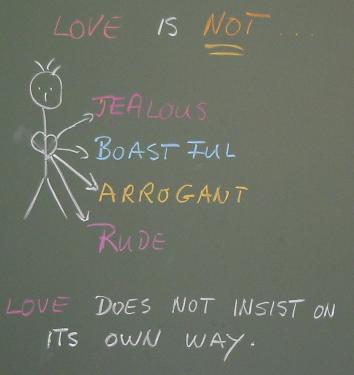 LOVE IS NOT ....
JEALOUS
BOASTFUL
ARROGANT
RUDE
LOVE DOES NOT INSIST ON
ITS OWN WAY.